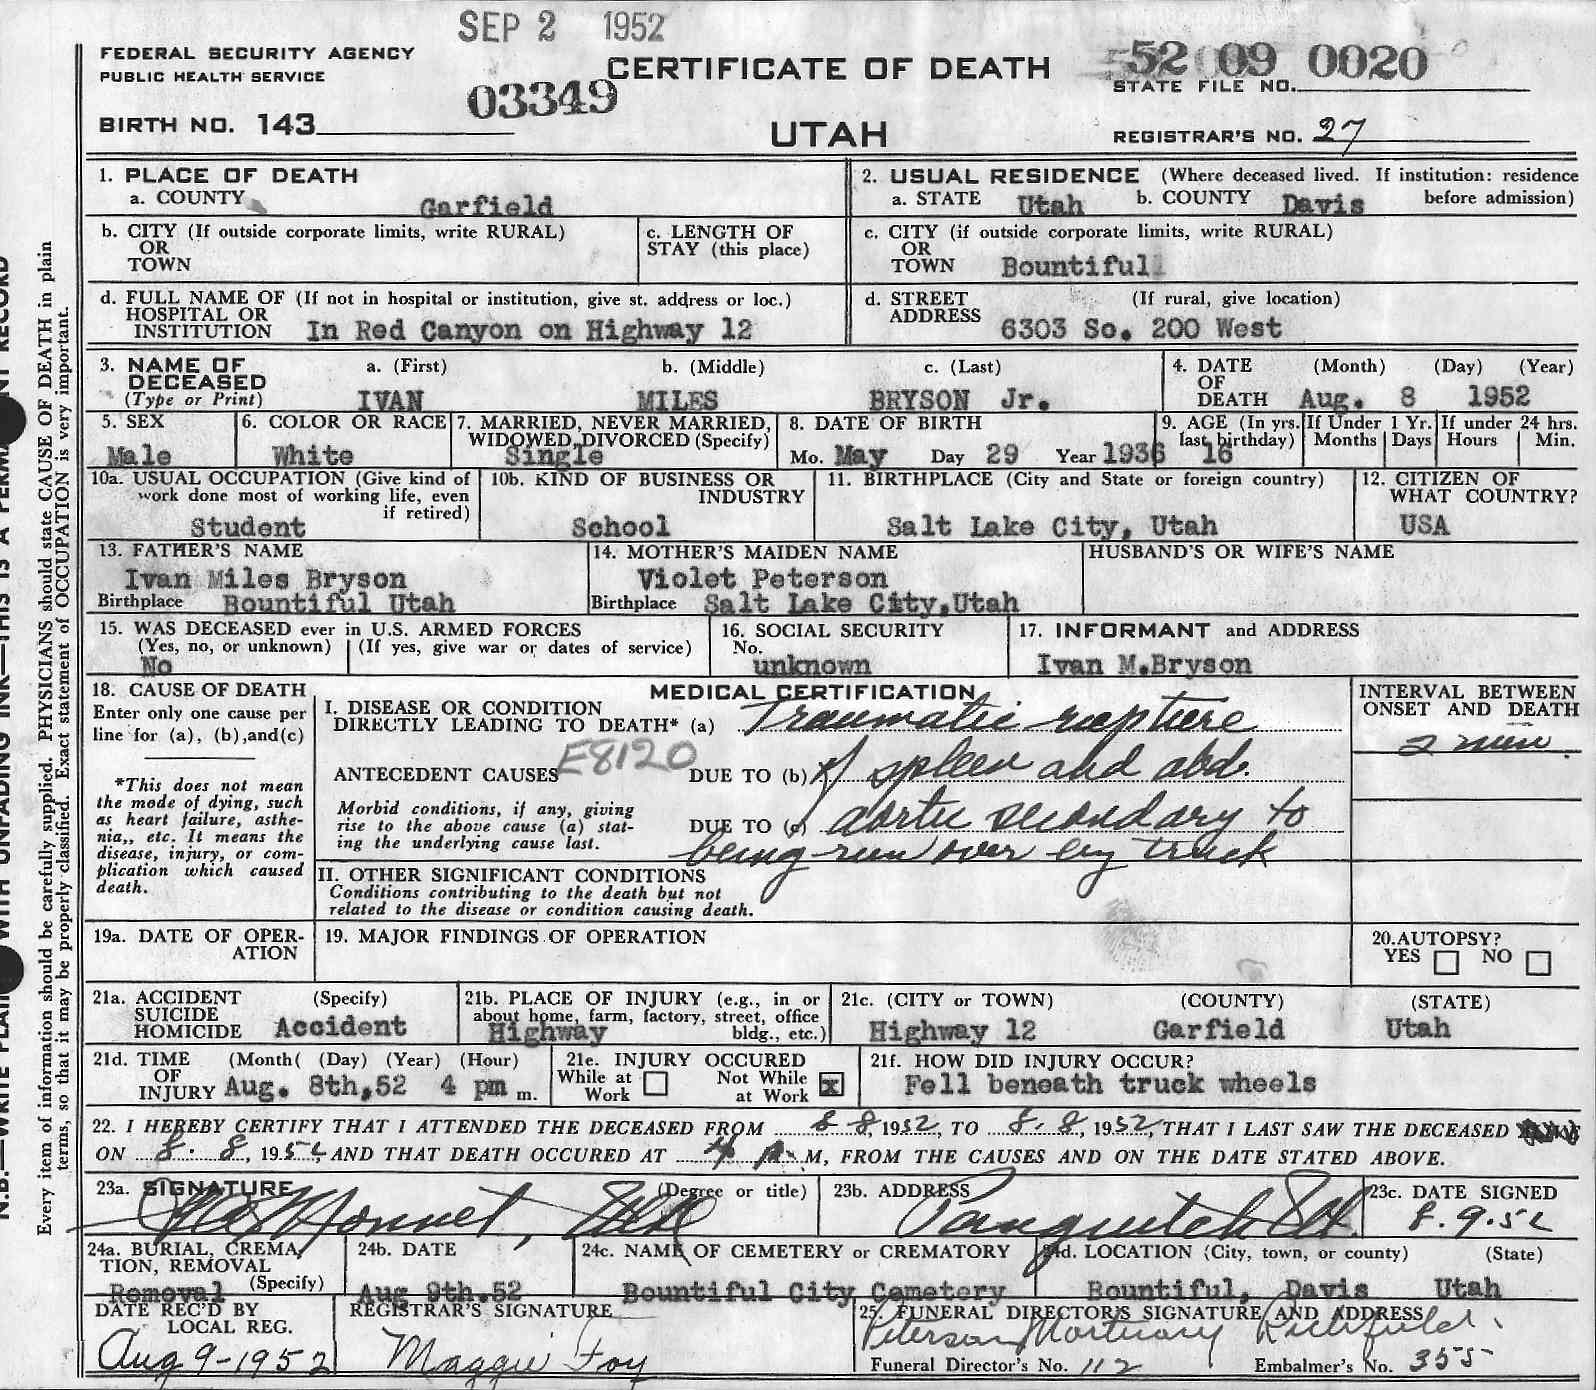 SEP 2 1952
FEDERAL SECURITY AGENCY
PUBLIC HEALTH SERVICE
03349
CERTIFICATE OF DEATH
52 09 0020
STATE FILE NO.
BIRTH NO. 143
UTAH
REGISTRAR'S NO. 27
1. PLACE OF DEATH
a. COUNTY Garfield
2. USUAL RESIDENCE (Where deceased lived. If institution: residence before admission)
a. STATE Utah b. COUNTY Davis
b. CITY (If outside corporate limits, write RURAL)
OR
TOWN
c. LENGTH OF
STAY (this place)
c. CITY (if outside corporate limits, write RURAL)
OR
TOWN Bountiful
d. FULL NAME OF (If not in hospital or institution, give st. address or loc.)
HOSPITAL OR
INSTITUTION In Red Canyon on Highway 12
d. STREET (If rural, give location)
ADDRESS 6303 So. 200 West
3. NAME OF
DECEASED
(Type or Print)
a. (First) b. (Middle) c. (Last)
IVAN MILES BRYSON Jr.
4. DATE (Month) (Day) (Year)
OF
DEATH Aug. 8 1952
5. SEX
Male
6. COLOR OR RACE
White
7. MARRIED, NEVER MARRIED,
WIDOWED, DIVORCED (Specify)
Single
8. DATE OF BIRTH
Mo. May Day 29 Year 1936
9. AGE (In yrs. last birthday)
16
If Under 1 Yr.
Months Days
If under 24 hrs.
Hours Min.
10a. USUAL OCCUPATION (Give kind of
work done most of working life, even
if retired)
Student
10b. KIND OF BUSINESS OR
INDUSTRY
School
11. BIRTHPLACE (City and State or foreign country)
Salt Lake City, Utah
12. CITIZEN OF
WHAT COUNTRY?
USA
13. FATHER'S NAME
Ivan Miles Bryson
Birthplace Bountiful Utah
14. MOTHER'S MAIDEN NAME
Violet Peterson
Birthplace Salt Lake City, Utah
HUSBAND'S OR WIFE'S NAME
15. WAS DECEASED ever in U.S. ARMED FORCES
(Yes, no, or unknown) (If yes, give war or dates of service)
No
16. SOCIAL SECURITY
No.
unknown
17. INFORMANT and ADDRESS
Ivan M.Bryson
18. CAUSE OF DEATH
Enter only one cause per
line for (a), (b),and(c)
*This does not mean
the mode of dying, such
as heart failure, asthe-
nia,, etc. It means the
disease, injury, or com-
plication which caused
death.
MEDICAL CERTIFICATION
I. DISEASE OR CONDITION
DIRECTLY LEADING TO DEATH* (a) Traumatic rupture
E8120
ANTECEDENT CAUSES DUE TO (b) of spleen and abd.
Morbid conditions, if any, giving
rise to the above cause (a) stat-
ing the underlying cause last.
DUE TO (c) aortic secondary to
being run over by truck
II. OTHER SIGNIFICANT CONDITIONS
Conditions contributing to the death but not
related to the disease or condition causing death.
INTERVAL BETWEEN
ONSET AND DEATH
2 min
19a. DATE OF OPER-
ATION
19. MAJOR FINDINGS OF OPERATION
20.AUTOPSY?
YES NO
21a. ACCIDENT (Specify)
SUICIDE
HOMICIDE Accident
21b. PLACE OF INJURY (e.g., in or
about home, farm, factory, street, office
bldg., etc.)
Highway
21c. (CITY or TOWN) (COUNTY) (STATE)
Highway 12 Garfield Utah
21d. TIME (Month( (Day) (Year) (Hour)
OF
INJURY Aug. 8th,52 4 pm m.
21e. INJURY OCCURED
While at Work Not While at Work x
21f. HOW DID INJURY OCCUR?
Fell beneath truck wheels
22. I HEREBY CERTIFY THAT I ATTENDED THE DECEASED FROM 8-8, 1952, TO 8-8, 1952, THAT I LAST SAW THE DECEASED
ON 8-8, 1952, AND THAT DEATH OCCURED AT 4 P.M, FROM THE CAUSES AND ON THE DATE STATED ABOVE.
23a. SIGNATURE (Degree or title)
23b. ADDRESS
Panguitch Ut.
23c. DATE SIGNED
8.9.52
24a. BURIAL, CREMA,
TION, REMOVAL
(Specify)
Removal
24b. DATE
Aug 9th.52
24c. NAME OF CEMETERY OR CREMATORY
Bountiful City Cemetery
24d. LOCATION (City, town, or county) (State)
Bountiful, Davis Utah
DATE REC'D BY
LOCAL REG.
Aug 9-1952
REGISTRAR'S SIGNATURE
Maggie Foy
25. FUNERAL DIRECTOR'S SIGNATURE AND ADDRESS
Peterson Mortuary Richfield.
Funeral Director's No. 112 Embalmer's No. 355
Every item of information should be carefully supplied. PHYSICIANS should state CAUSE OF DEATH in plain
terms, so that it may be properly classified. Exact statement of OCCUPATION is very important.